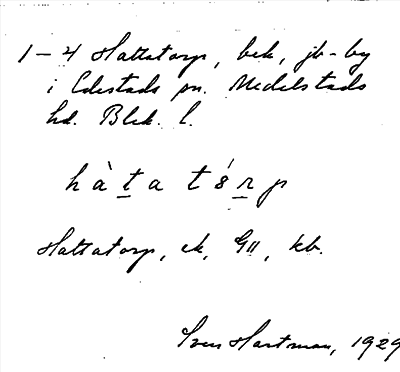 1-4 Hattatorp, bek, jb-by
i Edestads sn. Medelstads
hd. Blek. l.
hàt̲a tó̤r̲p
Hattatorp, ek, G11, kb.
Sven Hartman, 1929